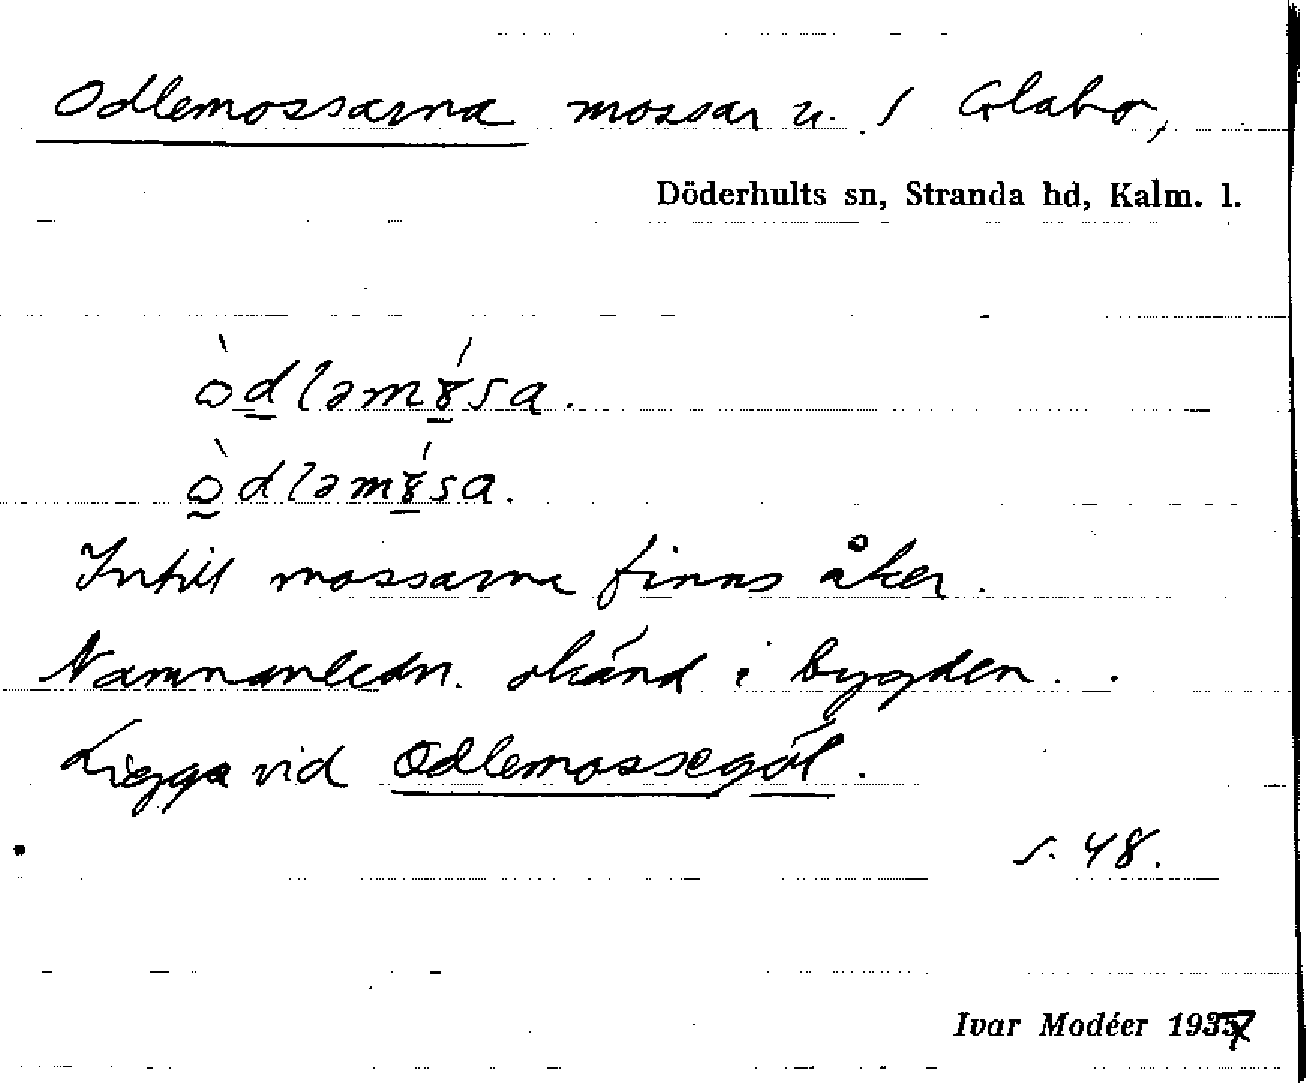 Odlemossarna mossar u. / Glabo,
Döderhults sn, Stranda hd, Kalm. l.
Intill mossarna finns åker.
Namnanledn. okänd i bygden.
Ligga vid Odlemossegöl.
s. 48.
Ivar Modéer 1937